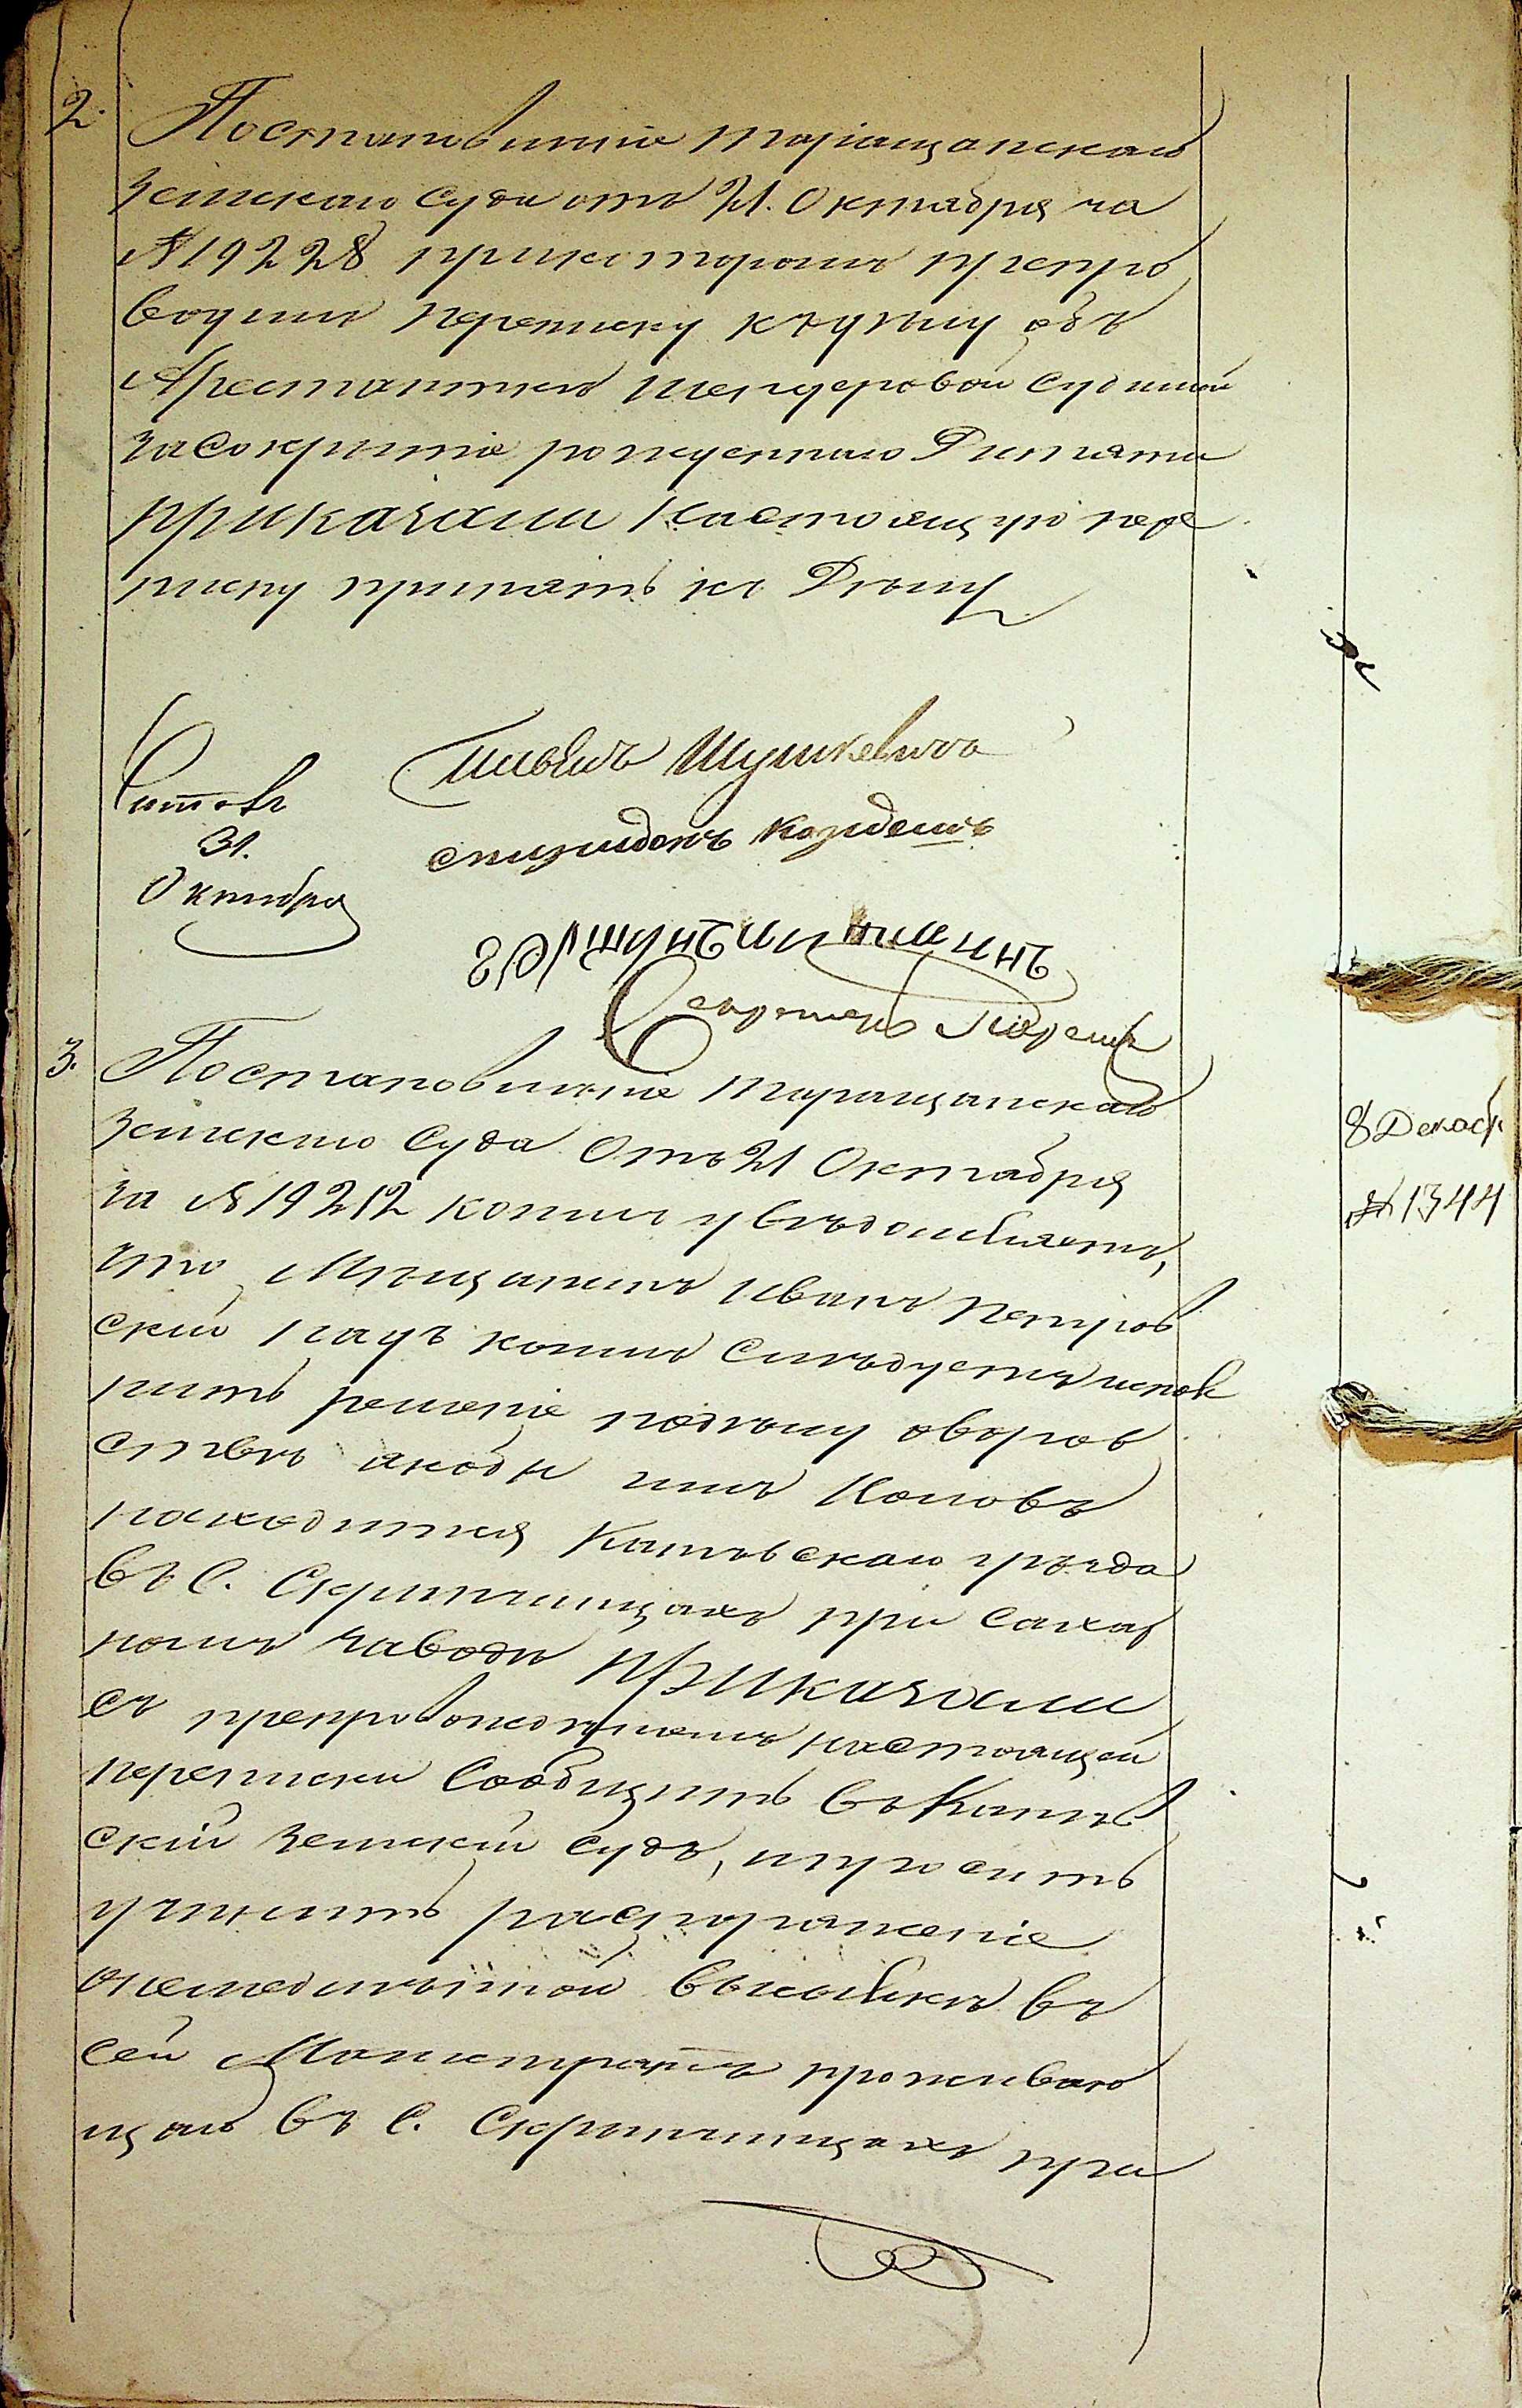 2. Постановленiе Таращанскаго
Земскаго Суда отъ 21. Октября за
№ 19228 прикоторомъ препро
водилъ переписку кдѣлу объ
Арестанткѣ Шендеровой Судимой
засокрытiе рожденнаго Дитяти
приказали Настоящую пере
писку принять къ Дѣлу
Читовъ
31.
Октября
Шушкевичъ
3. Постановленiе Таращанскаго
Земскаго Суда Отъ 21 Октября
за № 19212 коимъ увѣдомляетъ,
что Мѣщанинъ Иванъ Петров
скiй надъ коимъ слѣдуетъ испол
нить решенiе подѣлу оворов
ствѣ якобы имъ Коловъ
находится Каневскаго уѣзда
въ С. Скрипчинцахъ при Сахар
номъ заводѣ приказали
съ препровожденiемъ настоящей
переписки Сообщить въ Канев
скiй Земскiй Судъ, ипросить
учинить распоряженiе
онемедлѣнной высылкѣ въ
сей Магистратъ проживаю
щаго въ С. Скрипчинцахъ при
8 Декабр
№ 1344